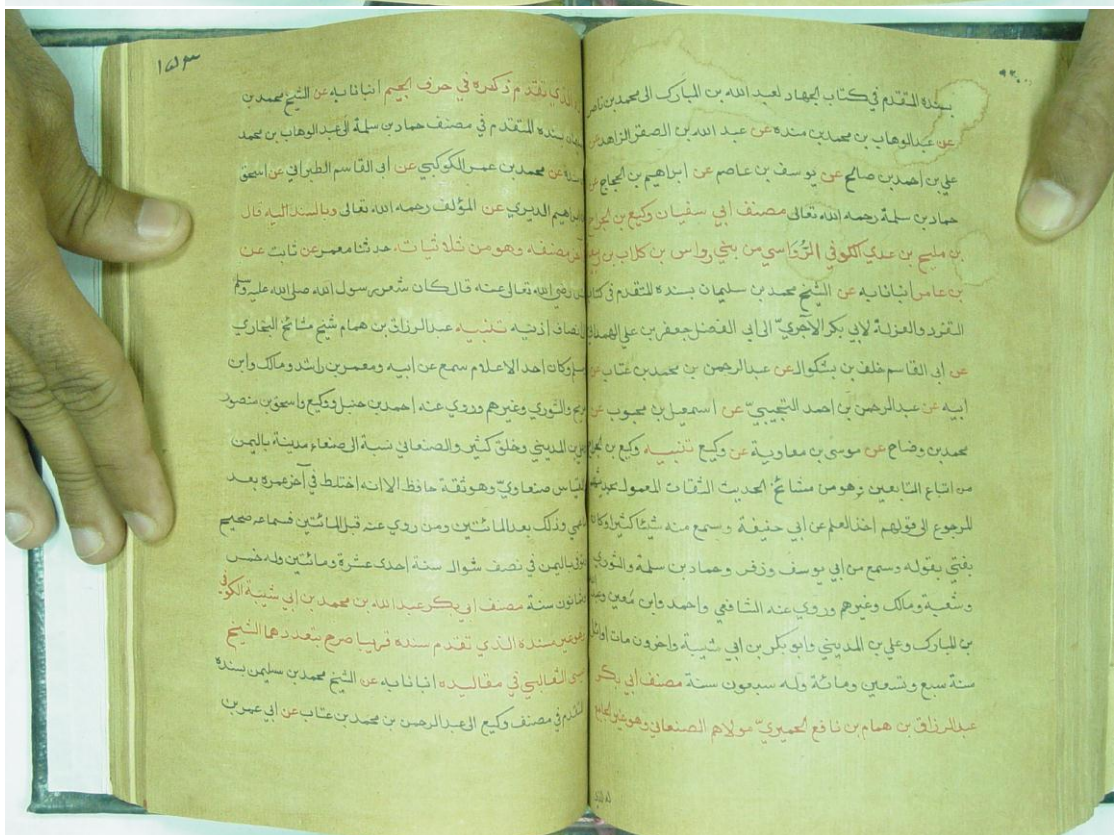 بسنده المتقدم في كتاب الجهاد لعبد الله بن المبارك الى محمد بن ناصر
عن عبدالوهاب بن محمد بن منده عن عبد الله بن الصقر الزاهد عن
علي بن احمد بن صالح عن يوسف بن عاصم عن ابراهيم بن الحجاج عن
حماد بن سلمة رحمه الله تعالى مصنف ابي سفيان وكيع بن الجراح
بن مليح بن عدي الكوفي الرُّؤاسي من بني رواس بن كلاب بن
بن عامر انبانا به عن الشيخ محمد بن سليمان بسنده المتقدم في كتاب
التفرد والعزلة لابي بكر الآجريّ الى ابي الفضل جعفر بن علي الهمداني
عن ابي القاسم خلف بن بشكوال عن عبدالرحمن بن محمد بن عتاب عن
ابيه عن عبدالرحمن بن احمد التجيبيّ عن اسمعيل بن محبوب عن
محمد بن وضاح عن موسى بن معاوية عن وكيع تنبيه وكيع بن الجراح
من اتباع التابعين وهو من مشائخ الحديث الثقات المعمول بحديثهم
المرجوع الى قولهم اخذ العلم عن ابي حنيفة وسمع منه شيئا كثيرا وكان
يفتي بقوله وسمع من ابي يوسف وزفر وحماد بن سلمة والثوري
وشعبة ومالك وغيرهم وروي عنه الشافعي واحمد وابن مُعين وعبد الله
بن المبارك وعلي بن المديني وابو بكر بن ابي شيبة واخرون مات اوائل
سنة سبع وتسعين ومائة وله سبعون سنة مصنف ابي بكر
عبدالرزاق بن همام بن نافع الحميريّ مولاهم الصنعاني وهو غير الجامع
الذي تقدم ذكره في حرف الجيم انبانا به عن الشيخ محمد بن
سليمان بسنده المتقدم في مصنف حماد بن سلمة الى عبدالوهاب بن محمد
بن منده عن محمد بن عمر الكوكبي عن ابي القاسم الطبراني عن اسحق
بن ابراهيم الدبري عن المؤلف رحمه الله تعالى وبالسند اليه قال
آخر مصنفه وهو من ثلاثياته حدثنا معمر عن ثابت عن
انس رضي الله تعالى عنه قال كان شعر رسول الله صلى الله عليه وسلم
الى انصاف اذنيه تنبيه عبدالرزاق بن همام شيخ مشائخ البخاري
ومسلم وكان احد الاعلام سمع عن ابيه ومعمر بن راشد ومالك وابن
جريج والثوري وغيرهم وروي عنه احمد بن حنبل ووكيع واسحق بن منصور
وعلي بن المديني وخلق كثير والصنعاني نسبة الى صنعاء مدينة باليمن
والقياس صنعاويّ وهو ثقة حافظ الا انه اختلط في آخر عمره بعد
ما عمي وذلك بعد المائتين ومن روي عنه قبل المائتين فسماعه صحيح
توفي باليمن في نصف شوال سنة احدى عشرة ومائتين وله خمس
وثمانون سنة مصنف ابي بكر عبد الله بن محمد بن ابي شيبة الكوفي
وهو غير مسنده الذي تقدم سنده قريبا صرح بتعددها الشيخ
عيسى الثعالبي في مقاليده انبانا به عن الشيخ محمد بن سليمن بسنده
المتقدم في مصنف وكيع الى عبدالرحمن بن محمد بن عتاب عن ابي عمر بن